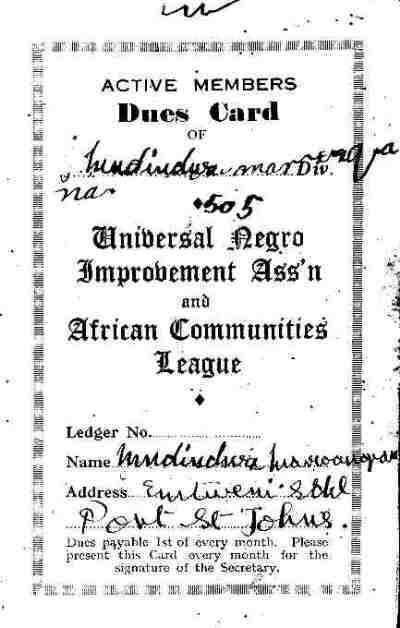 ACTIVE MEMBERS
Dues Card
OF
Mndindwa Div.
505
Universal Negro
Improvement Ass'n
and
African Communities
League
Ledger No.
Name Mndindwa
Address Emtweni
Port St Johns.
Dues payable 1st of every month. Please
present this Card every month for the
signature of the Secretary.